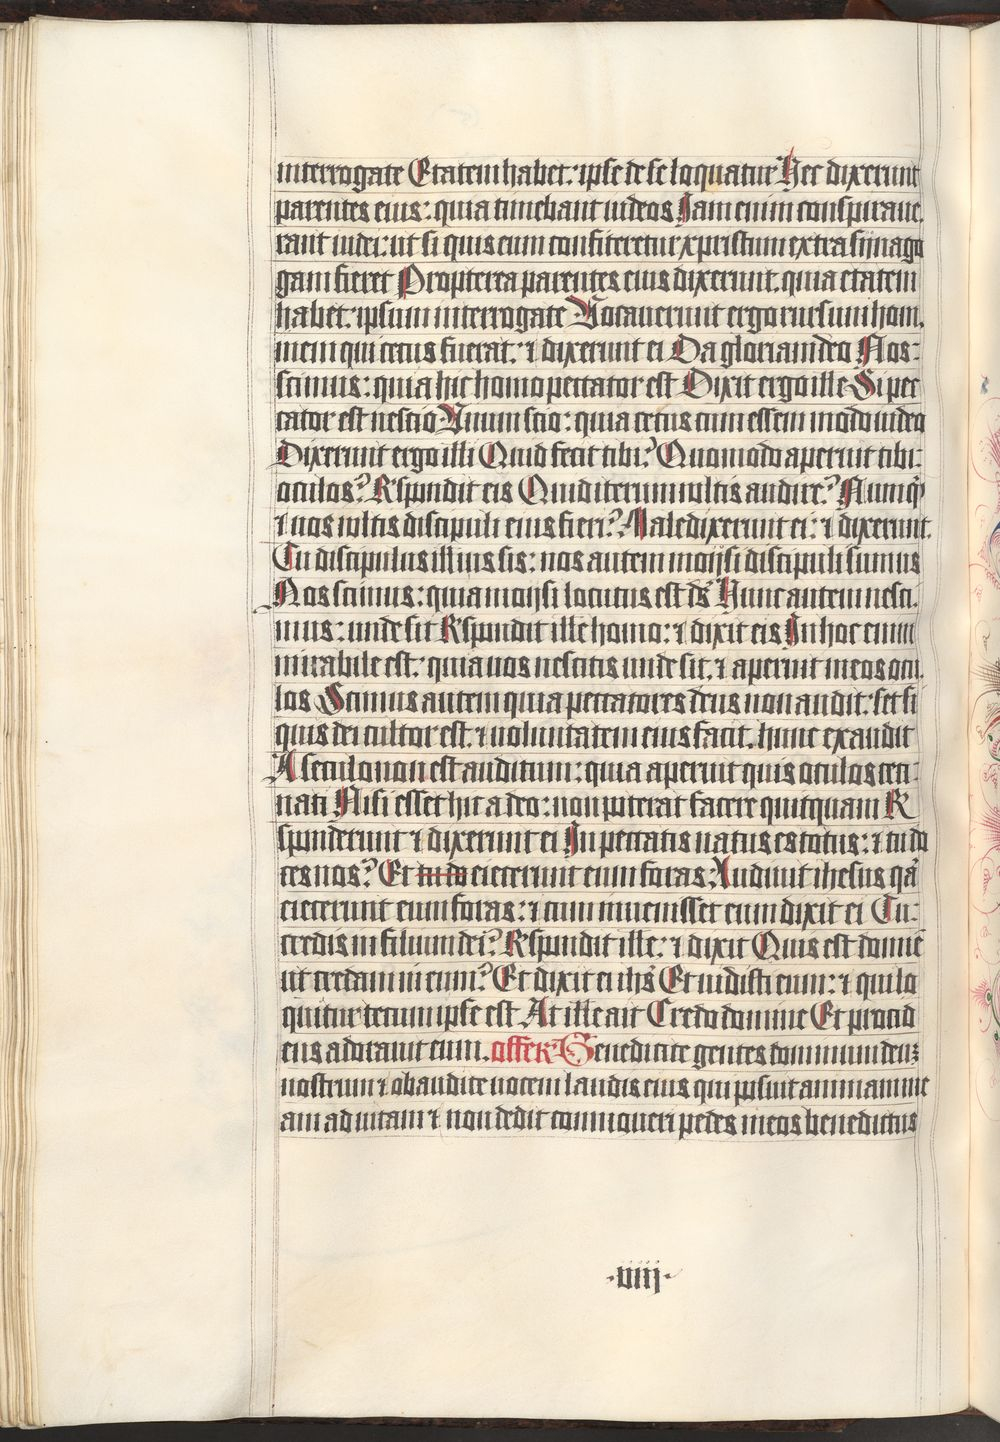 interrogate Etatem habet: ipse de se loquatur Hec dixerunt
parentes eius: quia timebant iudeos Jam enim conspiraue,
rant iudei: ut si quis eum confiteretur xpristum extra siinago
gam fieret Propterea parentes eius dixerunt. quia etatem
habet: ipsum interrogate Vocauerunt ergo rursum hom,
inem qui cecus fuerat: ⁊ dixerunt ei Da gloriam deo Nos:
scimus: quia hic homo peccator est Dixit ergo ille Si pec
cator est nescio Unum scio: quia cecus cum essem modo uideo
Dixerunt ergo illi Quid fecit tibi? Quomodo aperuit tibi:
oculos? R'spondit eis Quid iterum uultis audire? Nunq̄
⁊ uos uultis discipuli eius fieri? Maledixerunt ei: ⁊ dixerunt.
Tu discipulus illius sis: nos autem moysi discipuli sumus
Nos scimus: quia moysi locutus est ds̄ Hunc autem nesci,
mus: unde sit R'spondit ille homo: ⁊ dixit eis In hoc enim
mirabile est: quia uos nescitis unde sit. ⁊ aperuit meos ocu,
los Scimus autem quia peccatores deus non audit: set si
quis dei cultor est. ⁊ uoluntatem eius facit. hunc exaudit
A seculo non est auditum: quia aperuit quis oculos ceci:
nati Nisi esset hic a deo: non poterat facere quicquam R'
sponderunt ⁊ dixerunt ei In peccatis natus es totus: ⁊ tu do
ces nos? Et tu do eiecerunt eum foras: Audiuit ihesus q̄a
eiecerunt eum foras: ⁊ cum inuenisset eum dixit ei Tu:
credis in filium dei? R'spondit ille: ⁊ dixit Quis est domine
ut credam in eum? Et dixit ei ihs̄ Et uidisti eum: ⁊ qui lo
quitur tecum ipse est At ille ait Credo domine Et procid
ens adorauit eum. offer' Benedicite gentes dominum deuz
nostrum ⁊ obaudite uocem laudis eius qui posuit animam me
am ad uitam ⁊ non dedit commoueri pedes meos benedictus
·viiij·